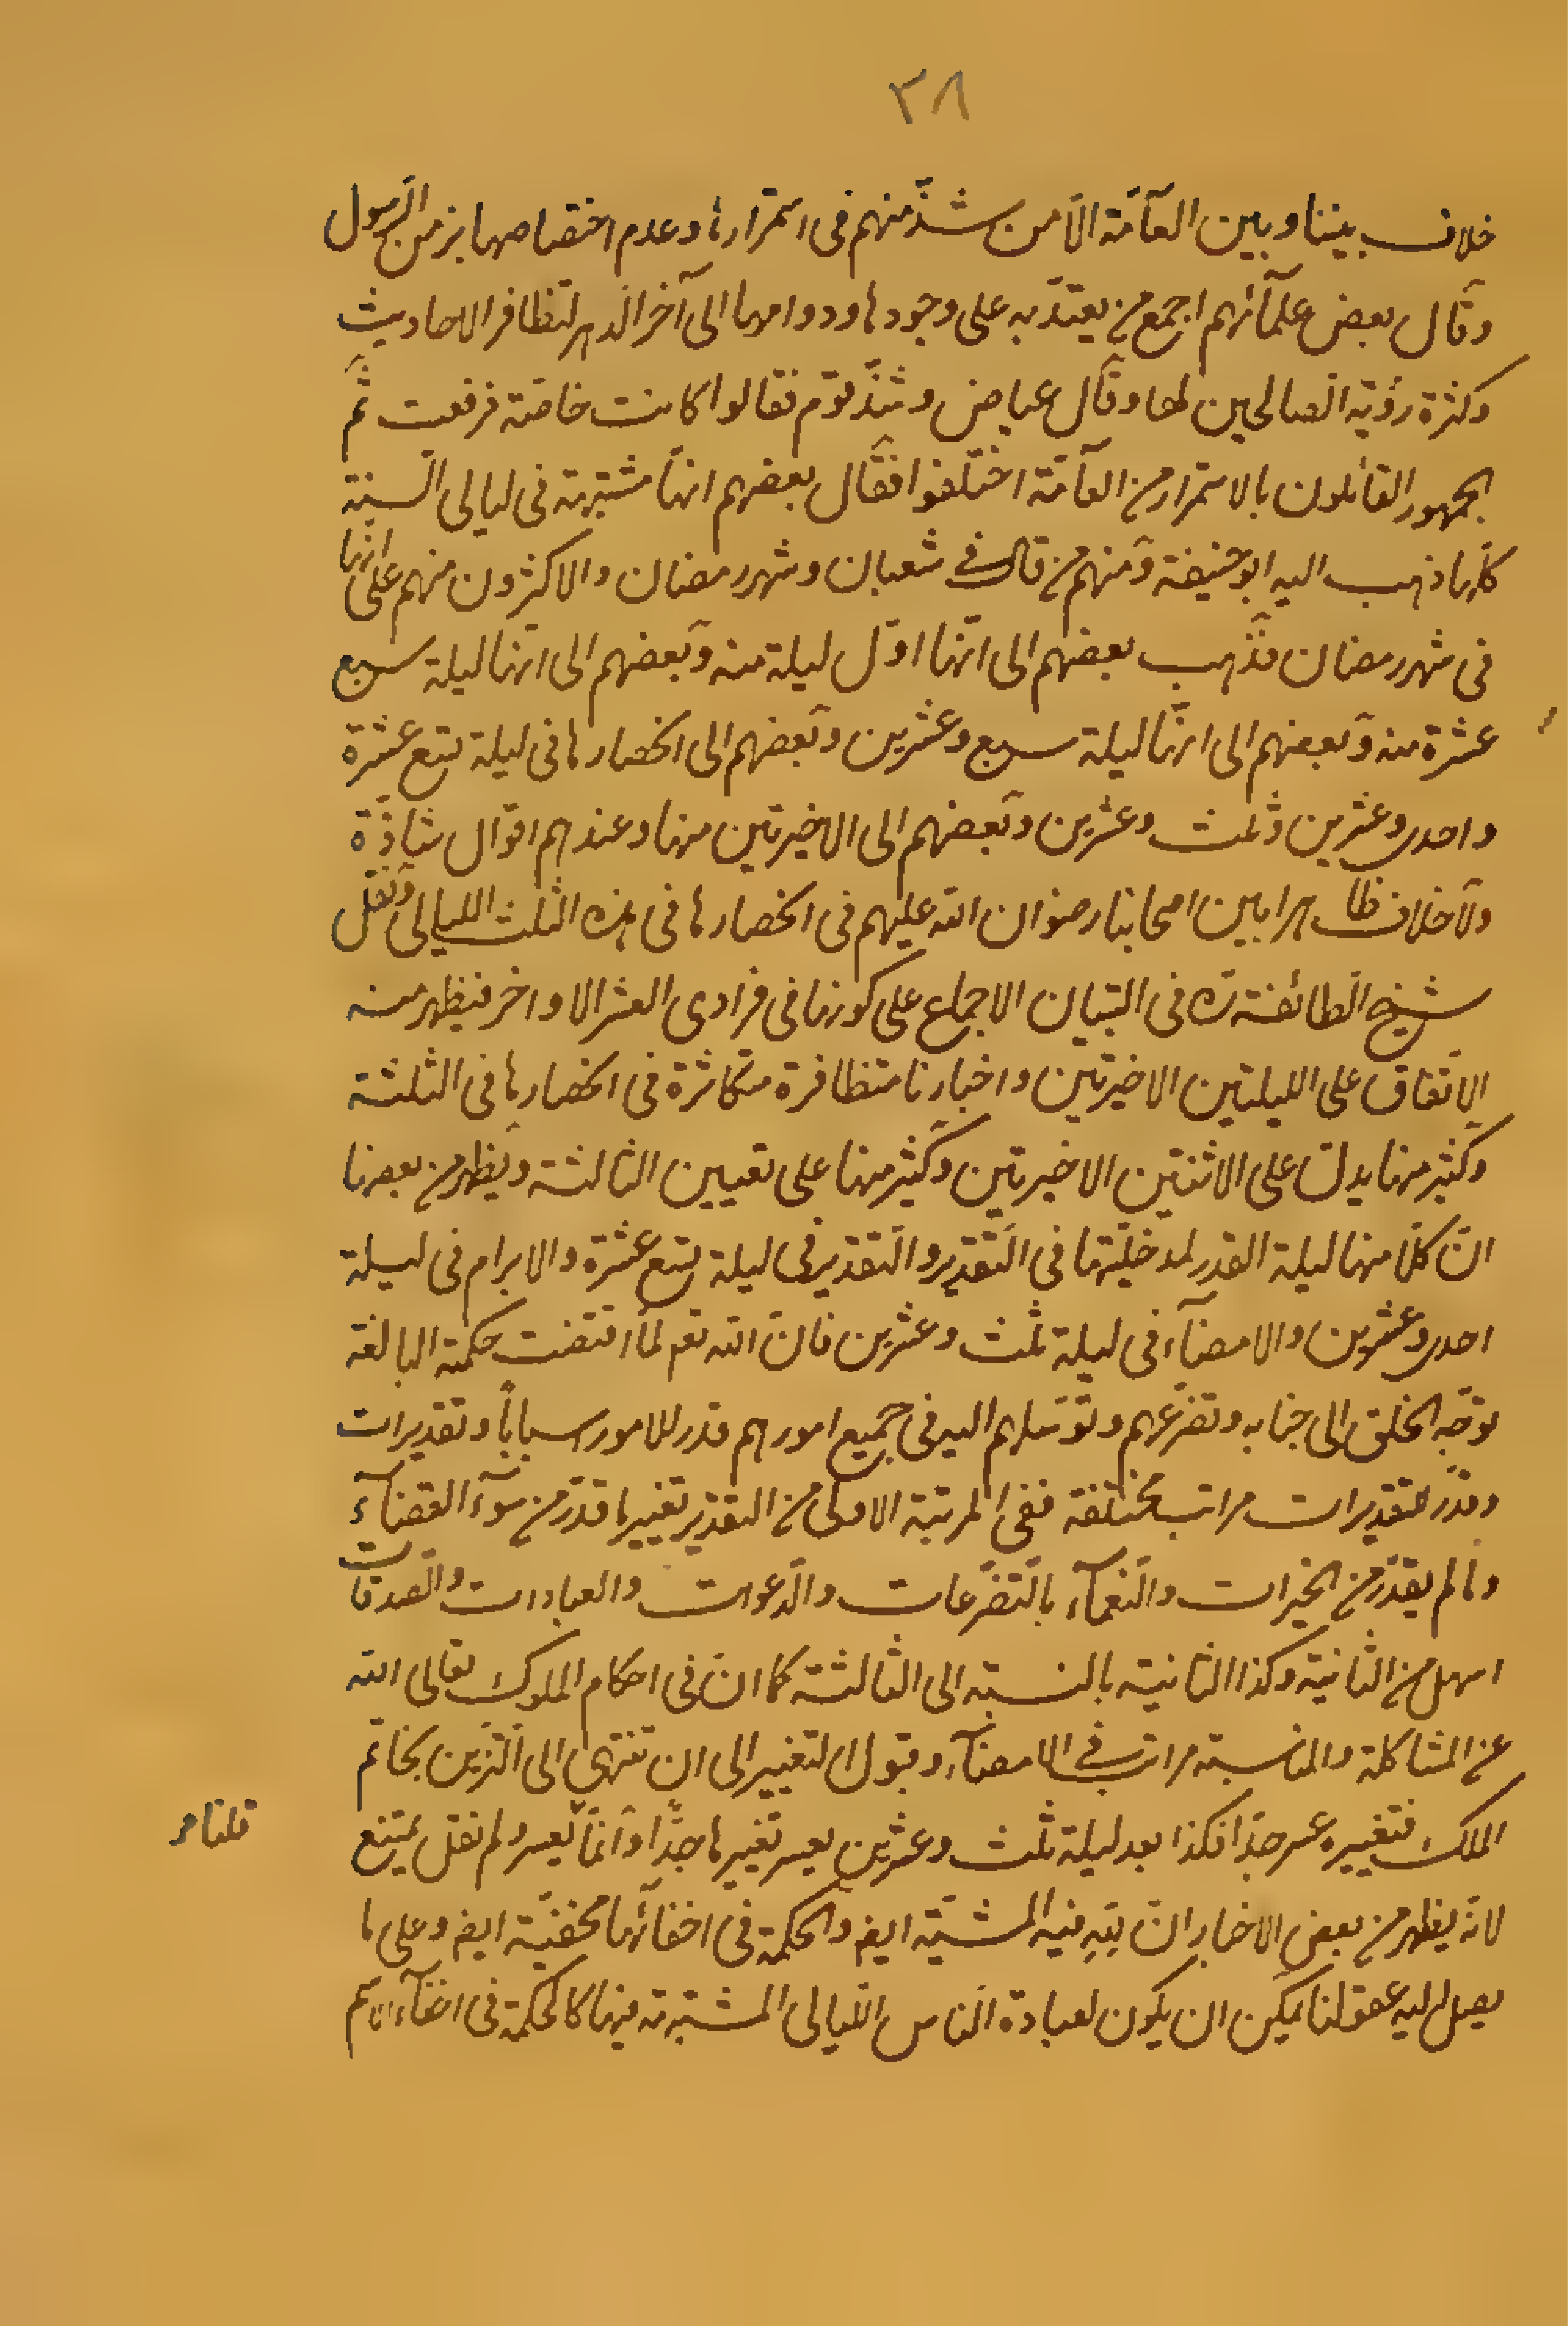 ٣٨
خلاف بيننا وبين العآمّة الّا من شذّ منهم فى استمرارها وعدم اختصاصها بزمن الرّسول
وقال بعض علمآئهم اجمع من يعتدّ به على وجودها ودوامها الى آخر الدّهر لتظافر الاحاديث
وكثرة رؤية الصالحين لها وقال عياض وشذّ قوم فقالوا كانت خاصّة فرفعت ثمّ
الجمهور القائلون بالاستمرار من العآمّة اختلفوا فقال بعضهم انهّا مشتبهة فى ليالى السنة
كلّها ذهب اليه ابو حنيفة ومنهم من قال فى شعبان وشهر رمضان والاكثرون منهم على انّها
فى شهر رمضان فذهب بعضهم الى انّها اوّل ليلة منه وبعضهم الى انّها ليلة سبع
عشرة منه وبعضهم الى انّها ليلة سبع وعشرين وبعضهم الى انحصارها فى ليلة تسع عشرة
واحدى وعشرين وثلث وعشرين وبعضهم الى الاخيرتين منها وعندهم اقوال شاذّة
ولا خلاف ظاهرا بين اصحابنا رضوان الله عليهم فى انحصارها فى هذه الثلث الليالى ونقل
شيخ الطائفة ره فى التبيان الاجماع على كونها فى فرادى العشر الاواخر فيظهر منه
الاتّفاق على الليلتين الاخيرتين واخبارنا متظافرة متكاثرة فى انحصارها فى الثلثة
وكثير منها يدلّ على الاثنتين الاخيرتين وكثير منها على تعيين الثالثة ويظهر من بعضها
انّ كلّا منها ليلة القدر لمدخليّتها فى التّقدير والتّقدير فى ليلة تسع عشرة والابرام فى ليلة
احدى وعشرين والامضآء فى ليلة ثلث وعشرين فانّ الله تعم لمّا اقتضت حكمته البالغة
توجّه الخلق الى جنابه وتضرّعهم وتوسّلهم اليه فى جميع امورهم قدر للامور اسباباً وتقديرات
وقدّر للتقديرات مراتب مختلفة ففى المرتبة الاولى من التقدير تغيير ما قدّر من سوء القضآء
وما لم يقدّر من الخيرات والنّعمآء بالتّضرّعات والدّعوات والعبادات والصدقات
اسهل من الثانية وكذا الثانية بالنسبة الى الثالثة كما انّ فى احكام الملوك تعالى الله
عن المشاكلة والمناسبة مراتب فى الامضآء وقبول التغيير الى ان تنتهى الى التزّين بخاتم
الملك فتغييره عسر جدّا فكذا بعد ليلة ثلث وعشرين يعسر تغييرها جدّاً وانّما يعسر ولم نقل يمتنع
قلنا مر
لانه يظهر من بعض الاخبار انّ فيه المشيّة ايض والحكمة فى اخفائها مخفيّة ايض وعلى ما
يصل اليه عقولنا يمكن ان يكون لعبادة النّاس اللّيالى المشتبهة فيها كالحكمة فى اخفآء